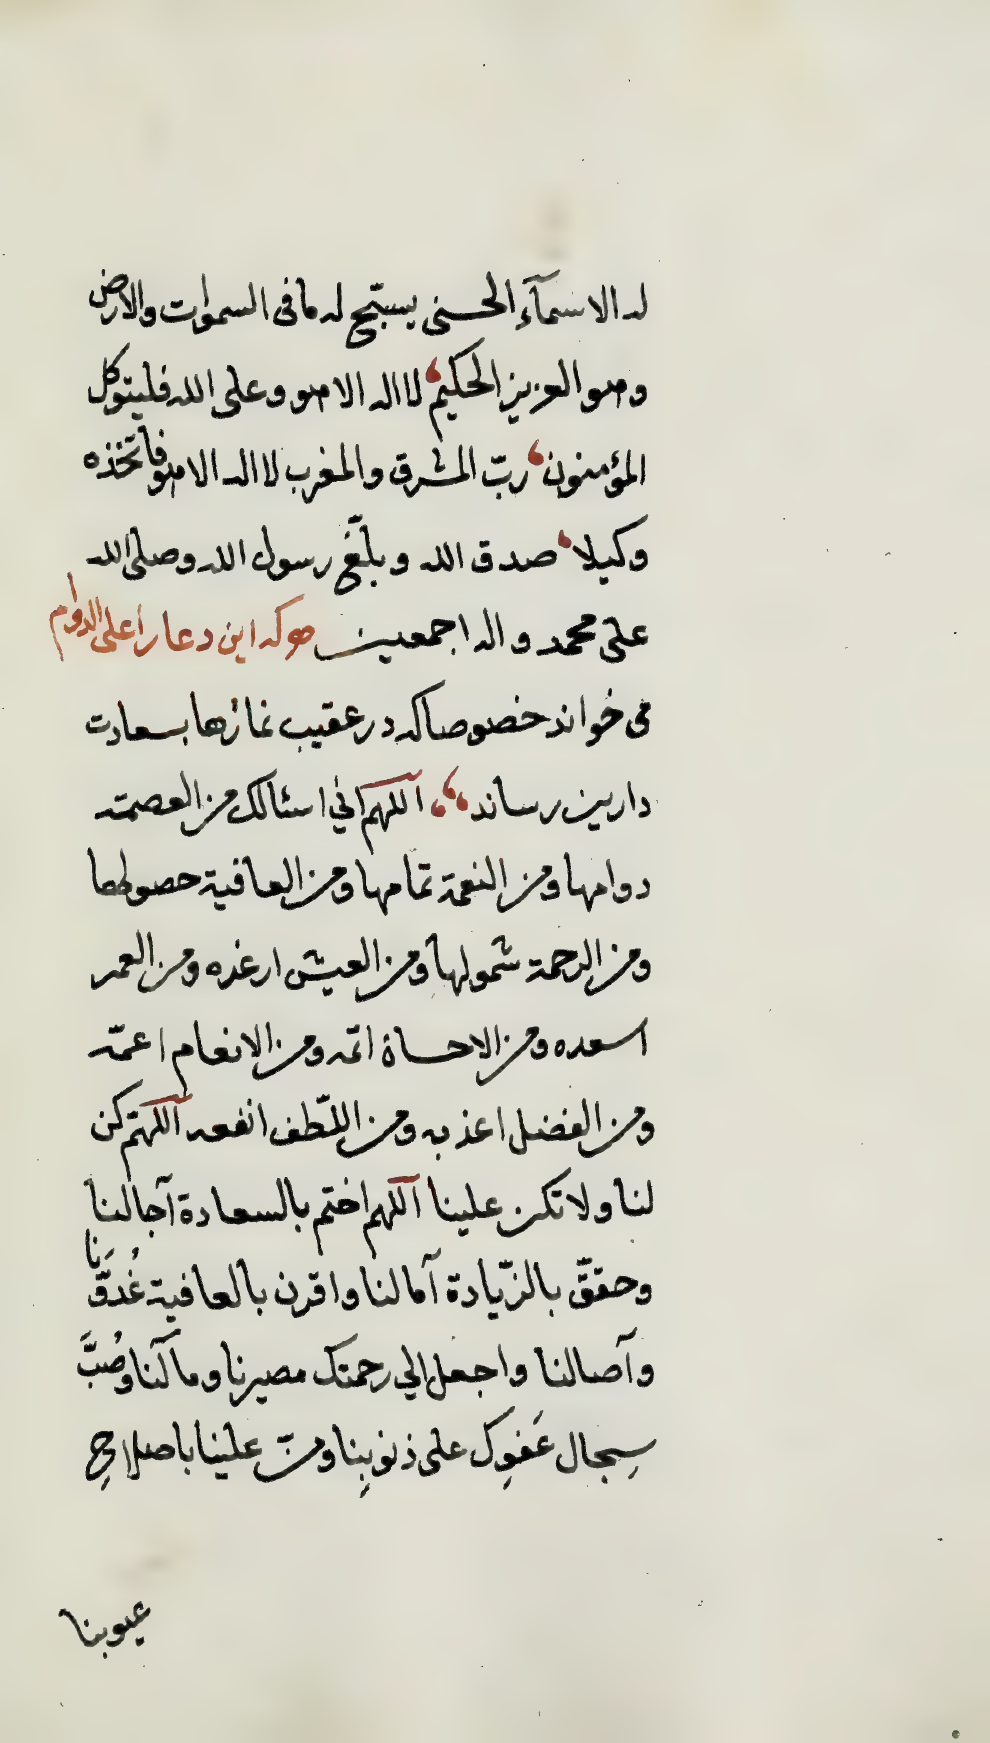 له الاسمآء الحسنى يسبّح له مافى السموات والارض
وهو العزيز الحكيم لا اله الا هو وعلى الله فليتوكل
المؤمنون ربّ المشرق والمغرب لا اله الا هو فاتخذه
وكيلا صدق الله وبلّغ رسول الله وصلى الله
على محمد واله اجمعين هركه اين دعا را على الدوام
مى خواند خصوصا كه در عقيب نمازها بسعادت
دارين رساند اللهم اني اسئالك من العصمة
دوامها ومن النعمة تمامها ومن العافية حصولها
ومن الرحمة شمولها ومن العيش ارغده ومن العمر
اسعده ومن الاحساة اتمه ومن الانعام اعمّه
ومن الفضل اعذبه ومن اللّطف انفعه اللهمّ كن
لنا ولا تكن علينا اللهم اختم بالسعادة آجالنا
وحقّق بالزّيادة آمالنا واقرن بالعافية غُدوَّنا
وآصالنا واجعل الي رحمتك مصيرنا ومآلنا وصُبَّ
سِجال عَفوِك على ذنوبِنا ومنّ علينا باصلاحِ
عيوبنا